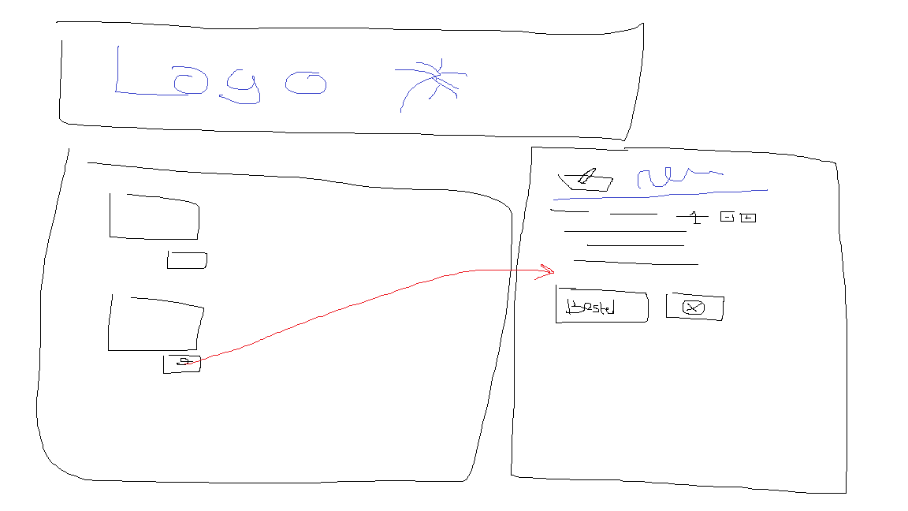 Logo
1 - +
Bestel X